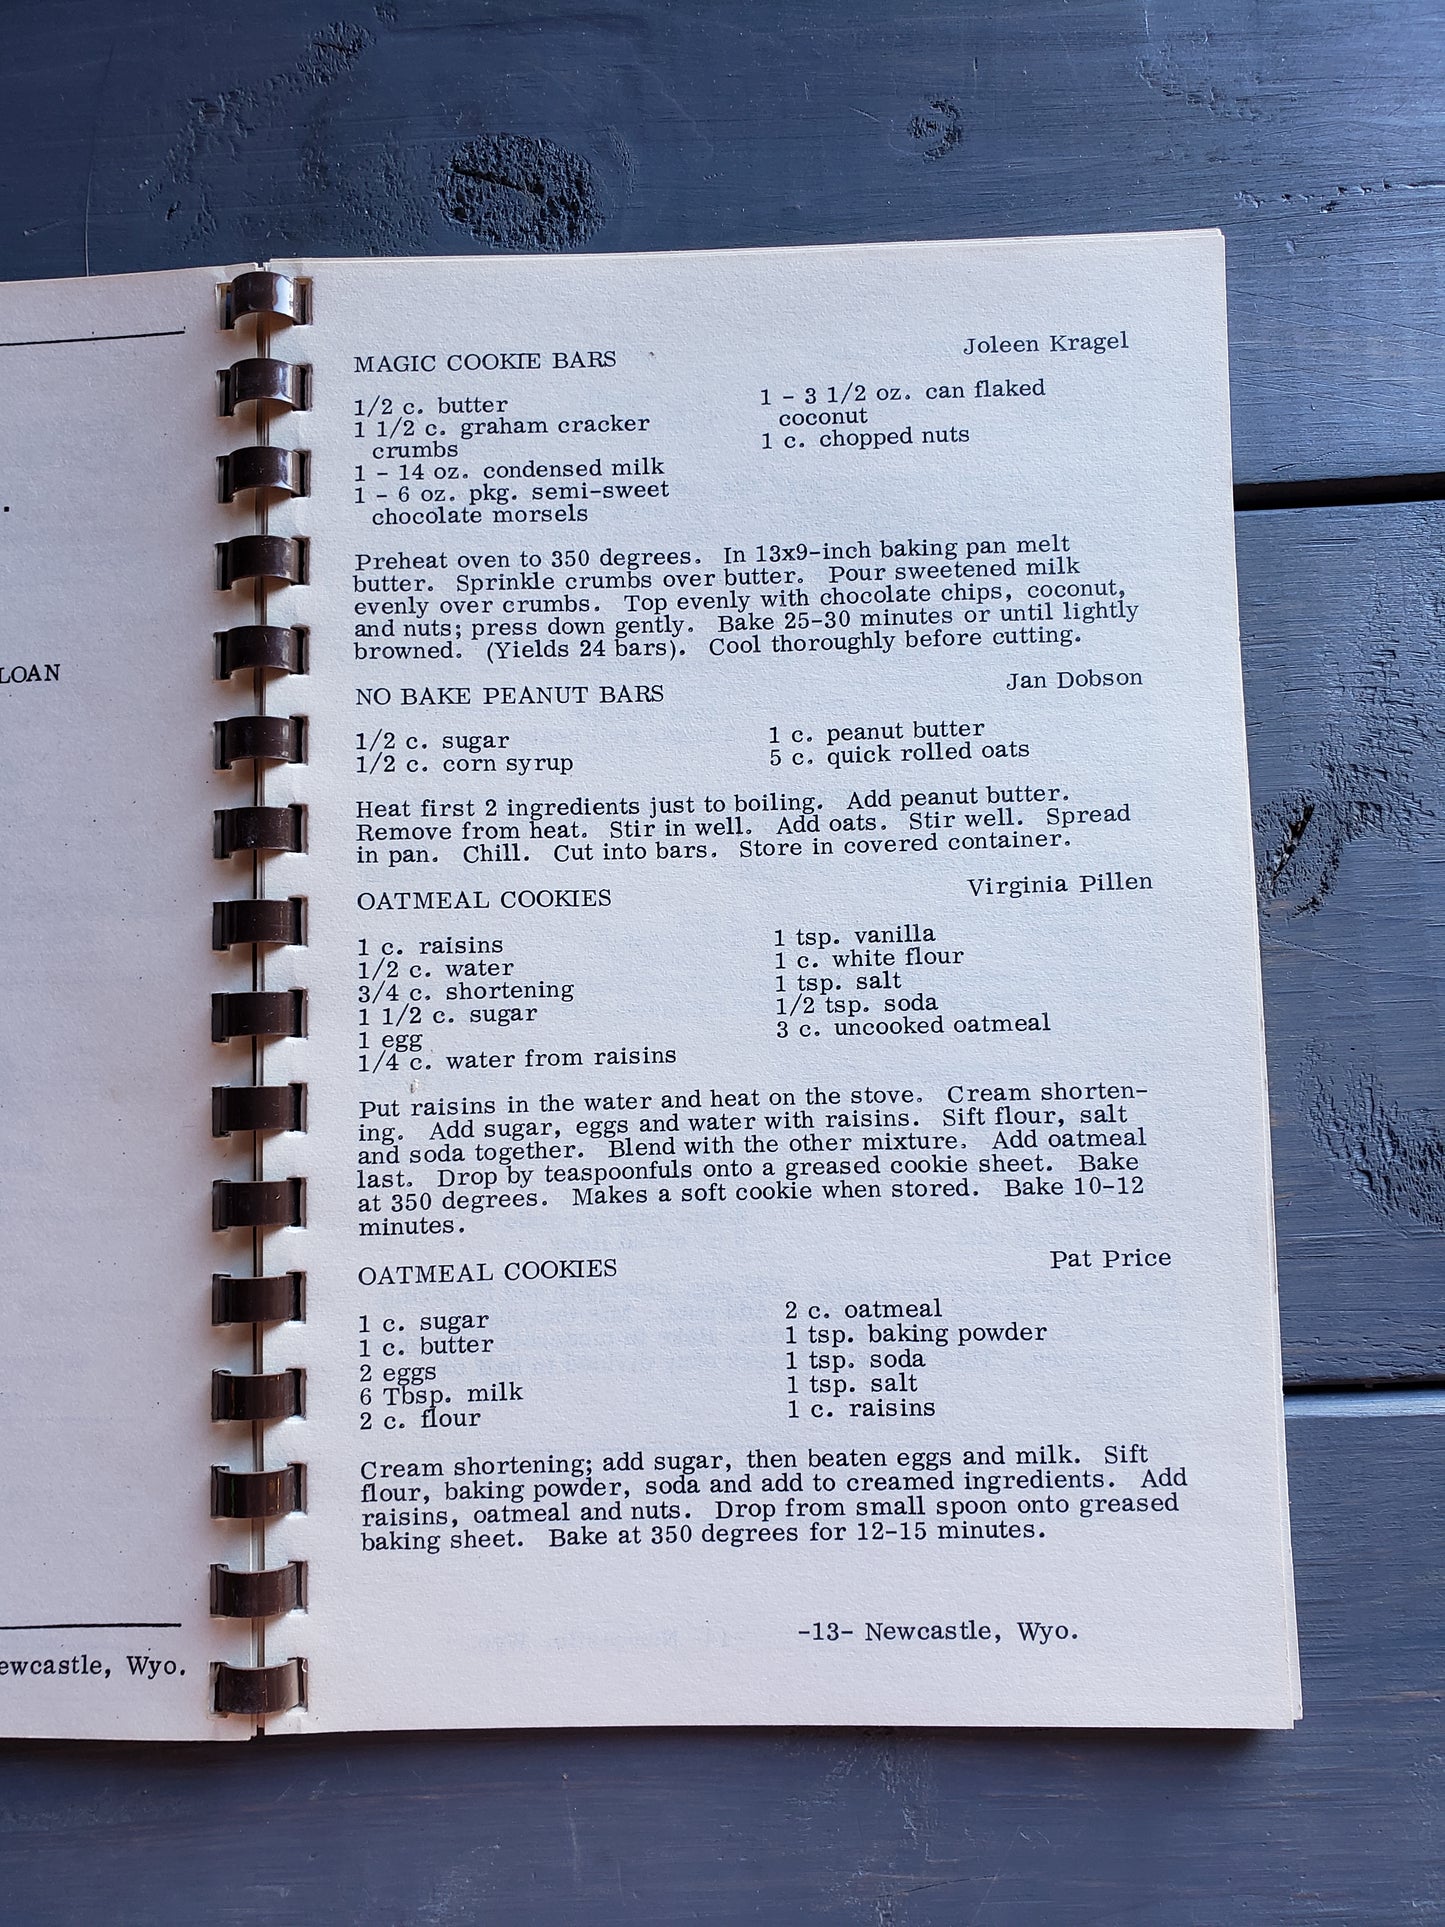 LOAN
ewcastle, Wyo.
MAGIC COOKIE BARS Joleen Kragel
1/2 c. butter
1 1/2 c. graham cracker
crumbs
1 - 14 oz. condensed milk
1 - 6 oz. pkg. semi-sweet
chocolate morsels
1 - 3 1/2 oz. can flaked
coconut
1 c. chopped nuts
Preheat oven to 350 degrees. In 13x9-inch baking pan melt
butter. Sprinkle crumbs over butter. Pour sweetened milk
evenly over crumbs. Top evenly with chocolate chips, coconut,
and nuts; press down gently. Bake 25-30 minutes or until lightly
browned. (Yields 24 bars). Cool thoroughly before cutting.
NO BAKE PEANUT BARS Jan Dobson
1/2 c. sugar
1/2 c. corn syrup
1 c. peanut butter
5 c. quick rolled oats
Heat first 2 ingredients just to boiling. Add peanut butter.
Remove from heat. Stir in well. Add oats. Stir well. Spread
in pan. Chill. Cut into bars. Store in covered container.
OATMEAL COOKIES Virginia Pillen
1 c. raisins
1/2 c. water
3/4 c. shortening
1 1/2 c. sugar
1 egg
1/4 c. water from raisins
1 tsp. vanilla
1 c. white flour
1 tsp. salt
1/2 tsp. soda
3 c. uncooked oatmeal
Put raisins in the water and heat on the stove. Cream shorten-
ing. Add sugar, eggs and water with raisins. Sift flour, salt
and soda together. Blend with the other mixture. Add oatmeal
last. Drop by teaspoonfuls onto a greased cookie sheet. Bake
at 350 degrees. Makes a soft cookie when stored. Bake 10-12
minutes.
OATMEAL COOKIES Pat Price
1 c. sugar
1 c. butter
2 eggs
6 Tbsp. milk
2 c. flour
2 c. oatmeal
1 tsp. baking powder
1 tsp. soda
1 tsp. salt
1 c. raisins
Cream shortening; add sugar, then beaten eggs and milk. Sift
flour, baking powder, soda and add to creamed ingredients. Add
raisins, oatmeal and nuts. Drop from small spoon onto greased
baking sheet. Bake at 350 degrees for 12-15 minutes.
-13- Newcastle, Wyo.